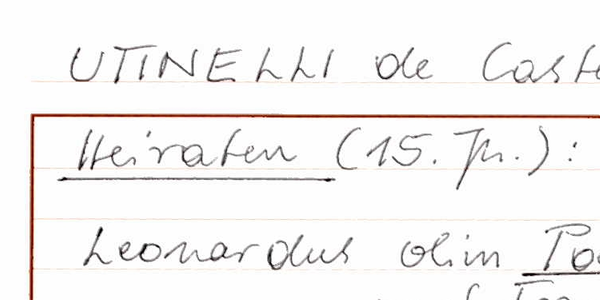 UTINELLI de
Heiraten (15. Jh.):
Leonardus olim